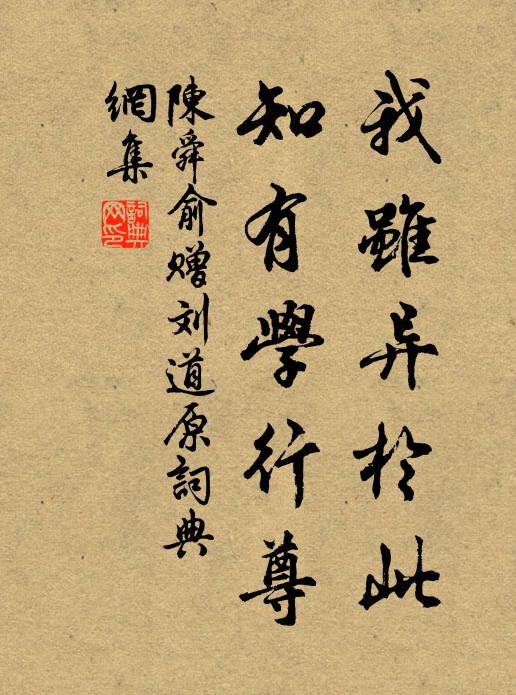 我雖异於此
知有學行尊
陳舜俞赠刘道原詞典
網集
詞典
网印